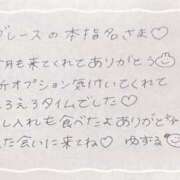 ブレースの本指名さま♡
月も来てくれてありがとう
オプション気けいてくれて
ろえるタイムでした♡
し入れも食べたよありがと
た会いに来てね♡ ゆずる